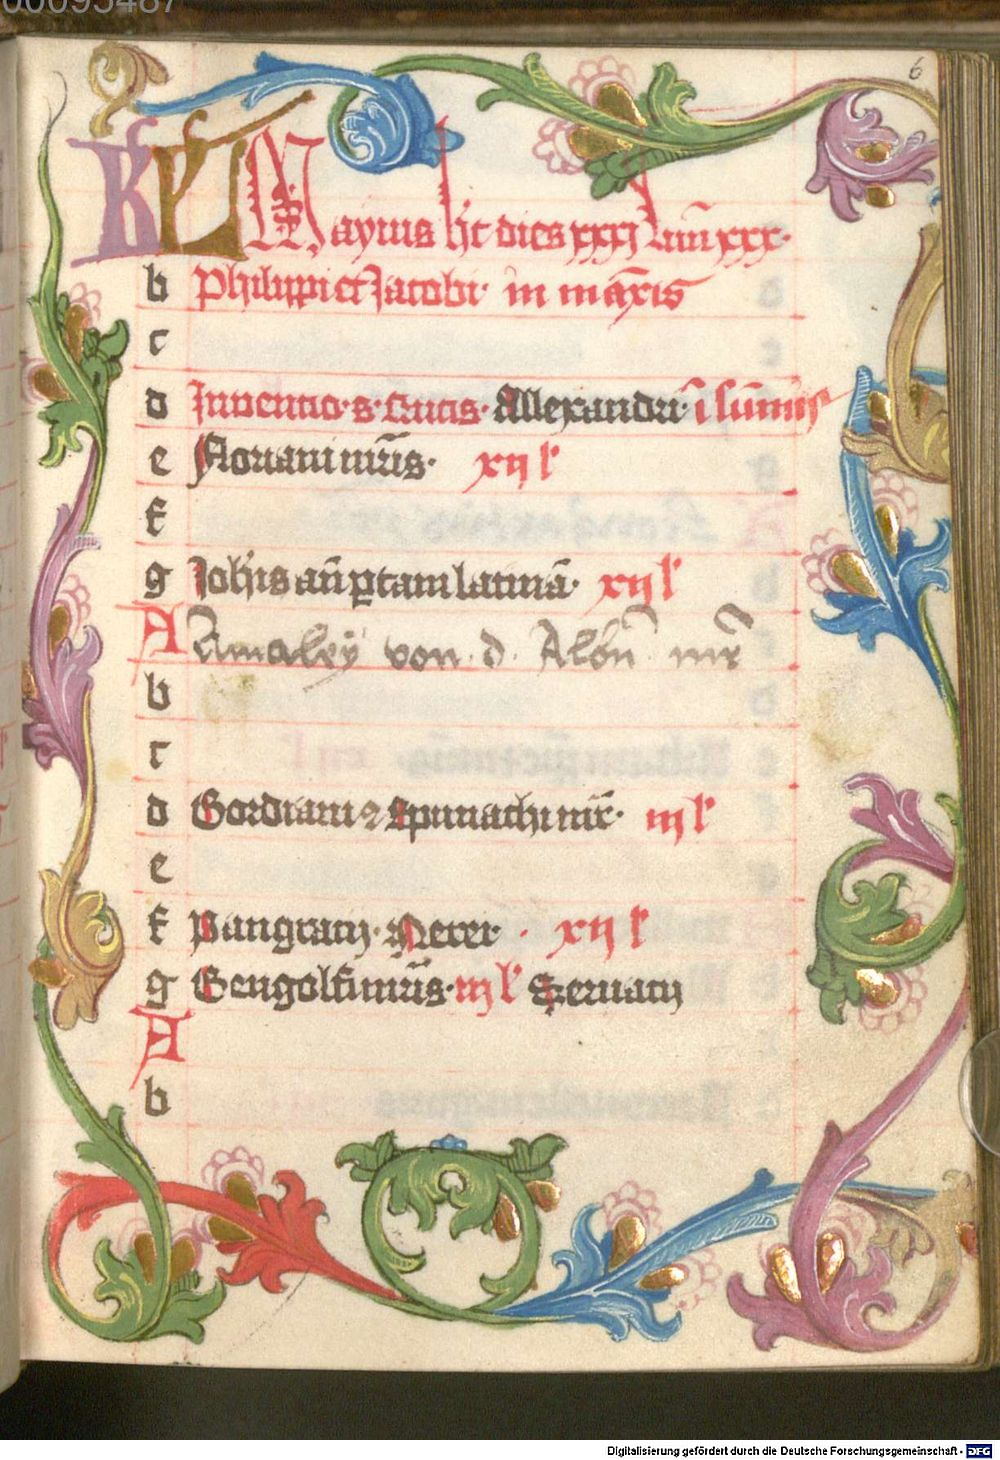 00095487
6
KL Mayius ht dies xxxj lun̄ xxx.
b Philippi et Jacobi. in māxis
c
d Inuentio. s. Crucis. Allexandri. ī sūmis
e Floriani mr̄is. xij l'
f
g Joh̄is an̄ portam latinā. xij l'
A Amaley von d. Albn̄ mr̄
b
c
d Gordiani & Epimachi mr̄. iij l'
e
f Pangracij. Nerer. xij l'
g Gengolfi mr̄is. iij l' Seruacij
A
b
Digitalisierung gefördert durch die Deutsche Forschungsgemeinschaft - DFG